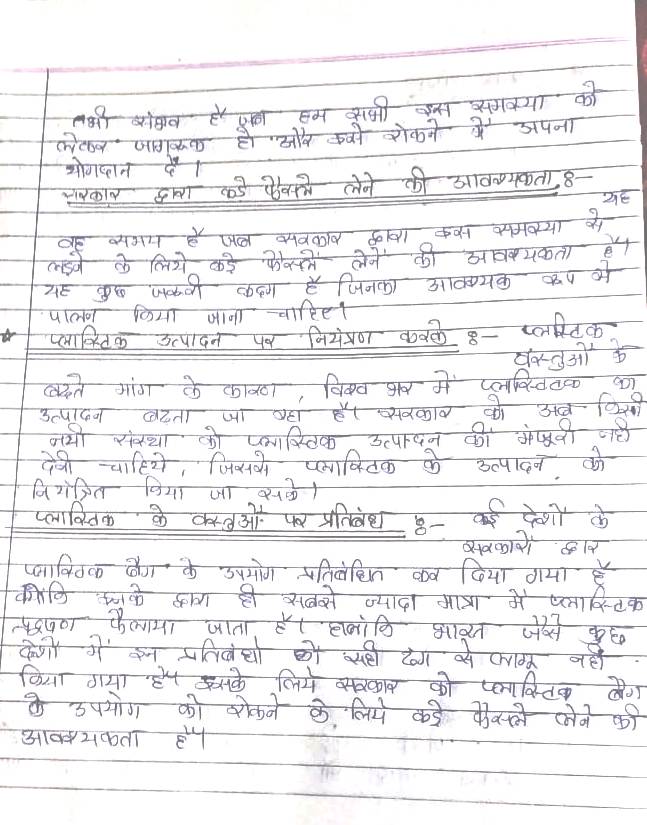 तभी संभव है जब हम सभी इस समस्या को
लेकर जागरुक हो और इसे रोकने में अपना
योगदान दें ।
सरकार द्वारा कड़े फैसले लेने की आवश्यकता :-
यह
वह समय है जब सरकार द्वारा इस समस्या से
लड़ने के लिये कड़े फैसले लेने की आवश्यकता है।
यह कुछ जरुरी कदम है जिनका आवश्यक रुप से
पालन किया जाना चाहिए।
* प्लास्टिक उत्पादन पर नियंत्रण करके :- प्लास्टिक
वस्तुओं के
बढ़ते मांग के कारण , विश्व भर में प्लास्टिक का
उत्पादन बढ़ता जा रहा है। सरकार को अब किसी
नयी संस्था को प्लास्टिक उत्पादन की मंजूरी नही
देनी चाहिये, जिससे प्लास्टिक के उत्पादन को
नियंत्रित किया जा सके।
प्लास्टिक के वस्तुओं पर प्रतिबंध :- कई देशों के
सरकारों द्वार
प्लास्टिक बैग के उपयोग प्रतिबंधित कर दिया गया है
क्योंकि इनके द्वारा ही सबसे ज्यादा मात्रा में प्लास्टिक
प्रदूषण फैलाया जाता है। हालांकि भारत जैसे कुछ
देशों में इन प्रतिबंधो को सही ढंग से लागू नही
किया गया है। इसके लिये सरकार को प्लास्टिक बैग
के उपयोग को रोकने के लिये कड़े फैसले लेने की
आवश्यकता है।